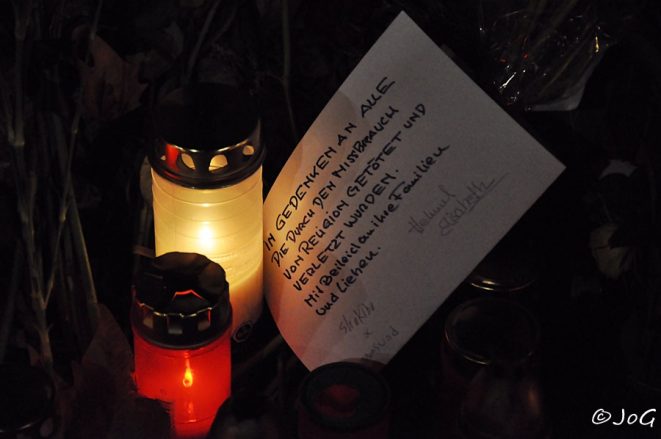 IN GEDENKEN AN ALLE
DIE DURCH DEN MISSBRAUCH
VON RELIGION GETÖTET UND
VERLETZT WURDEN.
Mit Beileid an ihre Familien
und Lieben.
Helmut
Elisabeth
©JoG